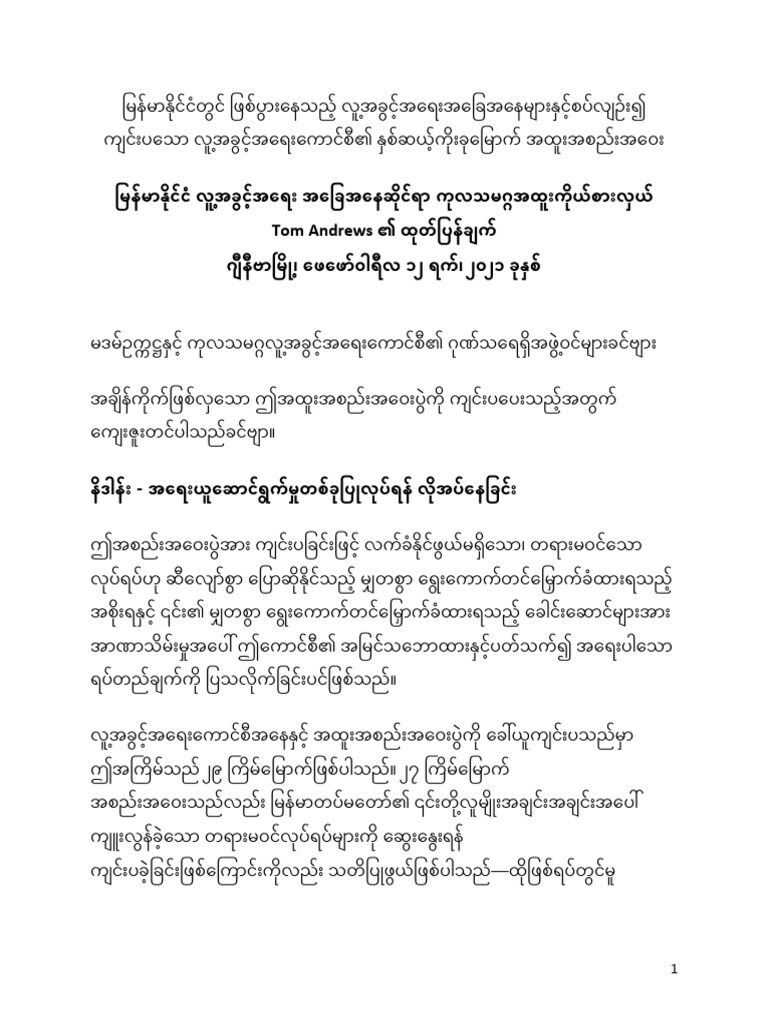 မြန်မာနိုင်ငံတွင် ဖြစ်ပွားနေသည့် လူ့အခွင့်အရေးအခြေအနေများနှင့်စပ်လျဉ်း၍
ကျင်းပသော လူ့အခွင့်အရေးကောင်စီ၏ နှစ်ဆယ့်ကိုးခုမြောက် အထူးအစည်းအဝေး
မြန်မာနိုင်ငံ လူ့အခွင့်အရေး အခြေအနေဆိုင်ရာ ကုလသမဂ္ဂအထူးကိုယ်စားလှယ်
Tom Andrews ၏ ထုတ်ပြန်ချက်
ဂျီနီဗာမြို့၊ ဖေဖော်ဝါရီလ ၁၂ ရက်၊ ၂၀၂၁ ခုနှစ်
မဒမ်ဥက္ကဋ္ဌနှင့် ကုလသမဂ္ဂလူ့အခွင့်အရေးကောင်စီ၏ ဂုဏ်သရေရှိအဖွဲ့ဝင်များခင်ဗျား
အချိန်ကိုက်ဖြစ်လှသော ဤအထူးအစည်းအဝေးပွဲကို ကျင်းပပေးသည့်အတွက်
ကျေးဇူးတင်ပါသည်ခင်ဗျာ။
နိဒါန်း - အရေးယူဆောင်ရွက်မှုတစ်ခုပြုလုပ်ရန် လိုအပ်နေခြင်း
ဤအစည်းအဝေးပွဲအား ကျင်းပခြင်းဖြင့် လက်ခံနိုင်ဖွယ်မရှိသော၊ တရားမဝင်သော
လုပ်ရပ်ဟု ဆီလျော်စွာ ပြောဆိုနိုင်သည့် မျှတစွာ ရွေးကောက်တင်မြှောက်ခံထားရသည့်
အစိုးရနှင့် ၎င်း၏ မျှတစွာ ရွေးကောက်တင်မြှောက်ခံထားရသည့် ခေါင်းဆောင်များအား
အာဏာသိမ်းမှုအပေါ် ဤကောင်စီ၏ အမြင်သဘောထားနှင့်ပတ်သက်၍ အရေးပါသော
ရပ်တည်ချက်ကို ပြသလိုက်ခြင်းပင်ဖြစ်သည်။
လူ့အခွင့်အရေးကောင်စီအနေနှင့် အထူးအစည်းအဝေးပွဲကို ခေါ်ယူကျင်းပသည်မှာ
ဤအကြိမ်သည် ၂၉ ကြိမ်မြောက်ဖြစ်ပါသည်။ ၂၇ ကြိမ်မြောက်
အစည်းအဝေးသည်လည်း မြန်မာတပ်မတော်၏ ၎င်းတို့လူမျိုးအချင်းအချင်းအပေါ်
ကျူးလွန်ခဲ့သော တရားမဝင်လုပ်ရပ်များကို ဆွေးနွေးရန်
ကျင်းပခဲ့ခြင်းဖြစ်ကြောင်းကိုလည်း သတိပြုဖွယ်ဖြစ်ပါသည်—ထိုဖြစ်ရပ်တွင်မူ
1